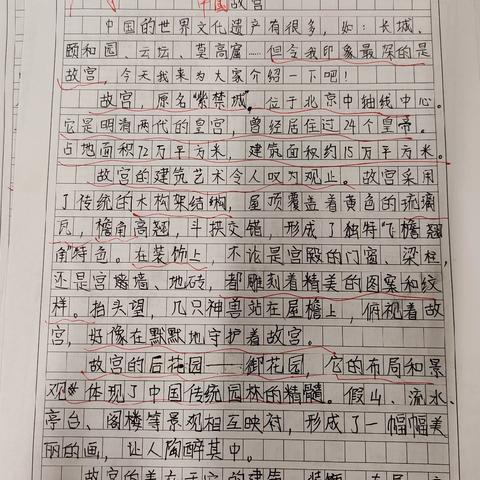 中国故宫
中国的世界文化遗产有很多，如：长城、
颐和园、云坛、莫高窟……但令我印象最深的是
故宫，今天我来为大家介绍一下吧！
故宫，原名“紫禁城”，位于北京中轴线中心。
它是明清两代的皇宫，曾经居住过24个皇帝。
占地面积72万平方米，建筑面权约15万平方米。
故宫的建筑艺术令人叹为观止。故宫采用
了传统的木构架结构，屋顶覆盖着黄色的琉璃
瓦，檐角高翘，斗拱交错，形成了独特“飞檐翘
角”特色。在装饰上，不论是宫殿的门窗、梁柱，
还是宫墙、地砖，都雕刻着精美的图案和纹
样。抬头望，几只神兽站在屋檐上，俯视着故
宫，好像在默默地守护着故宫。
故宫的后花园——御花园，它的布局和景
观体现了中国传统园林的精髓。假山、流水、
亭台、阁楼等景观相互映衬，形成了一幅幅美
丽的画，让人陶醉其中。
故宫的美在于它的建筑、装饰、布局、